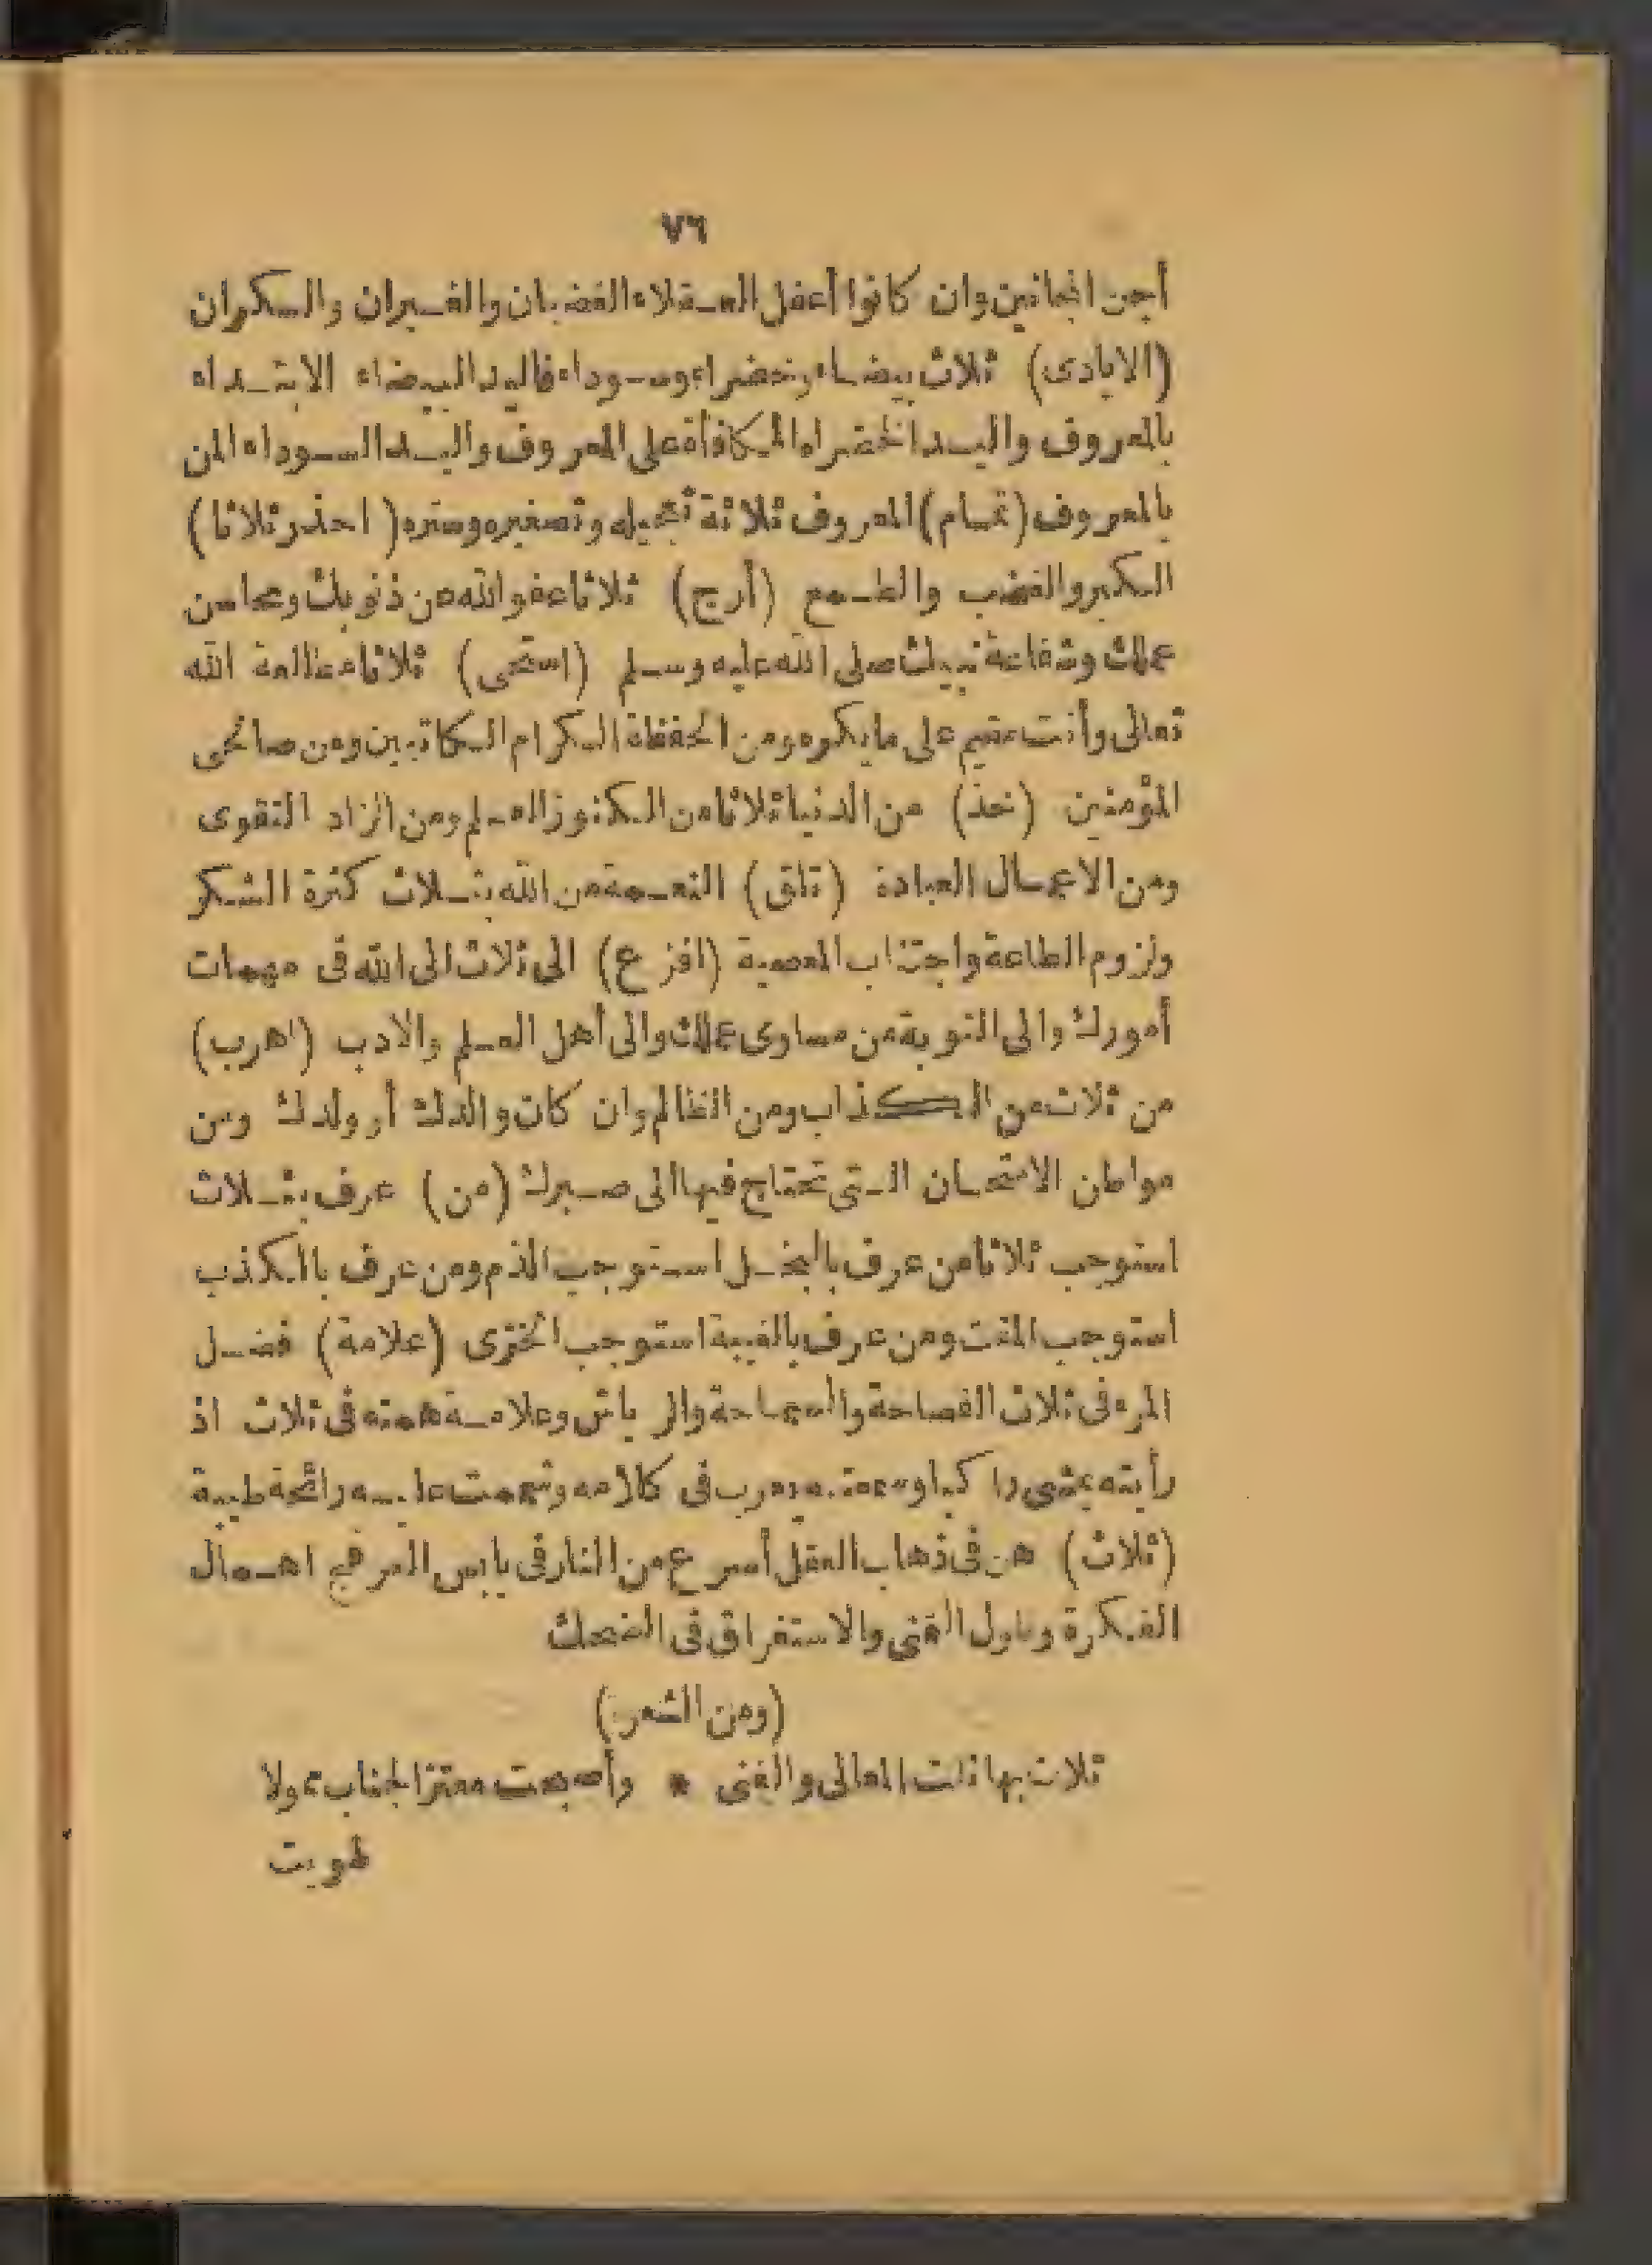 ٧٦
أجن المجانين وان كانوا أعقل العقلاء الغضبان والغيران والسكران
(الايادى) ثلاث بيضاء وخضراء وسوداء فاليد البيضاء الابتداء
بالمعروف واليد الخضراء المكافأة على المعروف واليد السوداء المن
بالمعروف (تمام) المعروف ثلاثة تعجيله وتصغيره وستره (احذر ثلاثا)
الكبر والغضب والطمع (أرج) ثلاثا عفو الله عن ذنوبك ومحاسن
عملك وشفاعة نبيك صلى الله عليه وسلم (استحى) ثلاثا مطالعة الله
تعالى وأنت مقيم على ما يكره ومن الحفظة الكرام الكاتبين ومن صالحى
المؤمنين (خذ) من الدنيا ثلاثا من الكنوز العلم ومن الزاد التقوى
ومن الاعمال العبادة (تلق) النعمة من الله بثلاث كثرة الشكر
ولزوم الطاعة واجتناب المعصية (افزع) الى ثلاث الى الله فى مهمات
أمورك والى التوبة من مساوى عملك والى أهل العلم والادب (اهرب)
من ثلاث من الكذاب ومن الظالم وان كان والدك أو ولدك ومن
مواطن الامتحان التى تحتاج فيها الى صبرك (من) عرف بثلاث
استوجب ثلاثا من عرف بالبخل استوجب الذم ومن عرف بالكذب
استوجب المقت ومن عرف بالغيبة استوجب الخزى (علامة) فضل
المرء فى ثلاث الفصاحة والسماحة والرياش وعلامة همته فى ثلاث اذ
رأيته يمشى راكبا وسمعته يعرب فى كلامه وشممت عليه رائحة طيبة
(ثلاث) هن فى ذهاب العقل أسرع من النار فى يابس العرفج اهمال
الفكرة وطول الغنى والاستغراق فى الضحك
(ومن الشعر)
ثلاث بها نلت المعالى والغنى * وأصبحت معتز الجناب مولا
طويت